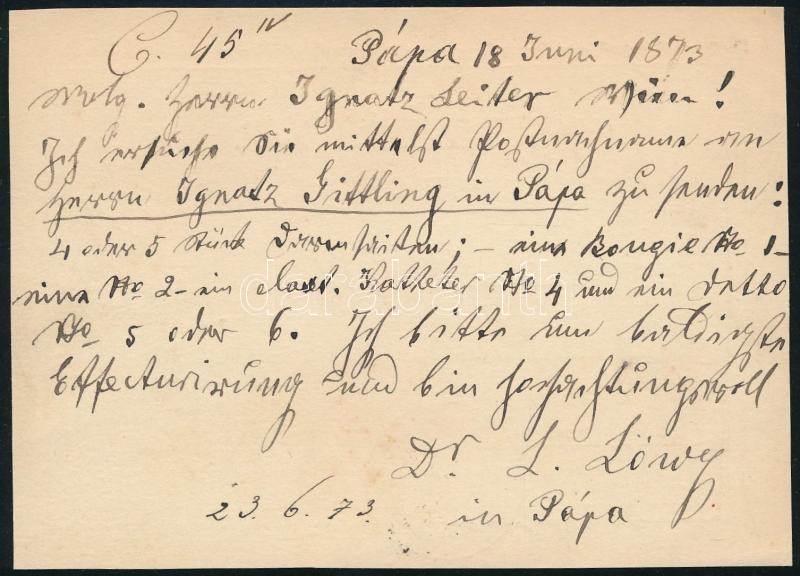 C. 45
Pápa 18 Juni 1873
Wolg. Herrn Ignatz Leiter Wien!
Ich ersuche Sie mittelst Postnachname an
Herrn Ignatz Gittling in Pápa zu senden:
4 oder 5 Stück Darmsaiten; – eine Bougie No 1–
eine No 2 – ein elast. Katheter No 4 und ein detto
No 5 oder 6. Ich bitte um baldigste
Effectuirung und bin hochachtungsvoll
Dr. L. Löwy
23. 6. 73. in Pápa
darabanth